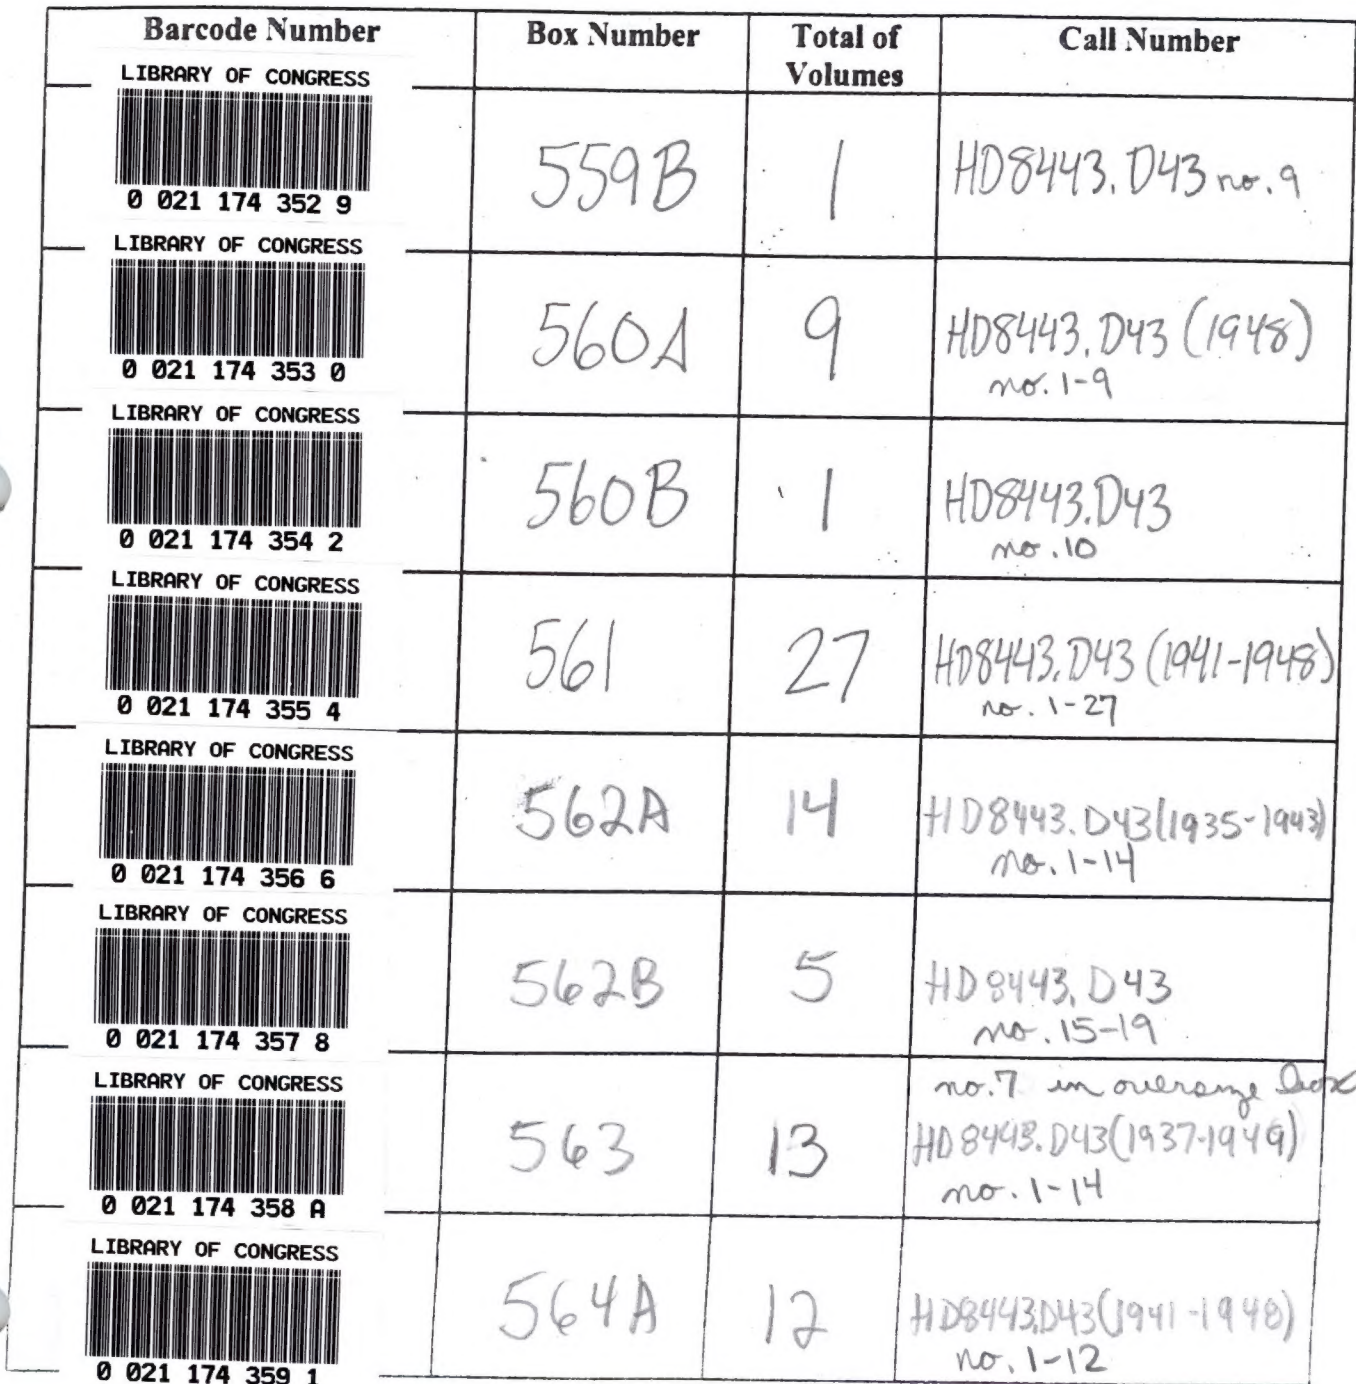 Barcode Number Box Number Total of Volumes Call Number
LIBRARY OF CONGRESS
0 021 174 352 9
559B 1 HD8443.D43 no.9
LIBRARY OF CONGRESS
0 021 174 353 0
560A 9 HD8443.D43 (1948)
no. 1-9
LIBRARY OF CONGRESS
0 021 174 354 2
560B 1 HD8443.D43
no. 10
LIBRARY OF CONGRESS
0 021 174 355 4
561 27 HD8443.D43 (1941-1948)
no. 1-27
LIBRARY OF CONGRESS
0 021 174 356 6
562A 14 HD8443.D43(1935-1943)
no. 1-14
LIBRARY OF CONGRESS
0 021 174 357 8
562B 5 HD8443.D43
no. 15-19
LIBRARY OF CONGRESS
0 021 174 358 A
563 13 no.7 in oversize box
HD8443.D43(1937-1949)
no. 1-14
LIBRARY OF CONGRESS
0 021 174 359 1
564A 12 HD8443.D43(1941-1948)
no. 1-12